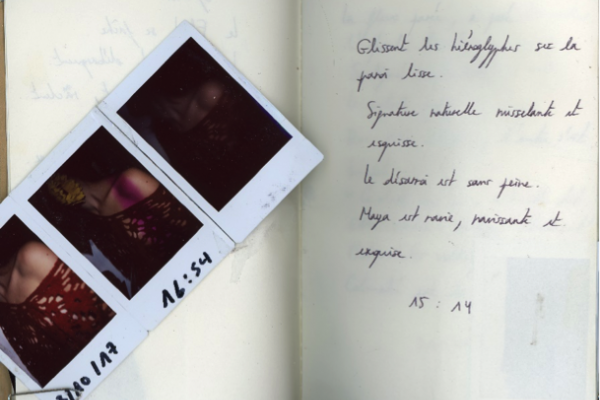 16:54
/10/17
Glissent les hiéroglyphes sur la
paroi lisse.
Signature naturelle ruisselante et
esquisse.
Le désarroi est sans peine.
Maya est ravie, ravissante et
exquise.
15 : 14